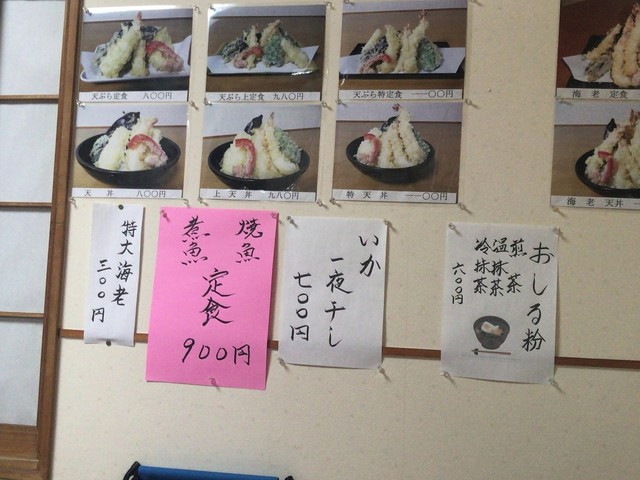 天ぷら定食 八〇〇円
天ぷら上定食 九八〇円
天ぷら特定食 一一〇〇円
海老定食
天丼 八〇〇円
上天丼 九八〇円
特天丼 一一〇〇円
海老天丼
特大海老
三〇〇円
焼魚
煮魚
定食
900円
いか
一夜干し
七〇〇円
おしる粉
煎茶
温抹茶
冷抹茶
六〇〇円